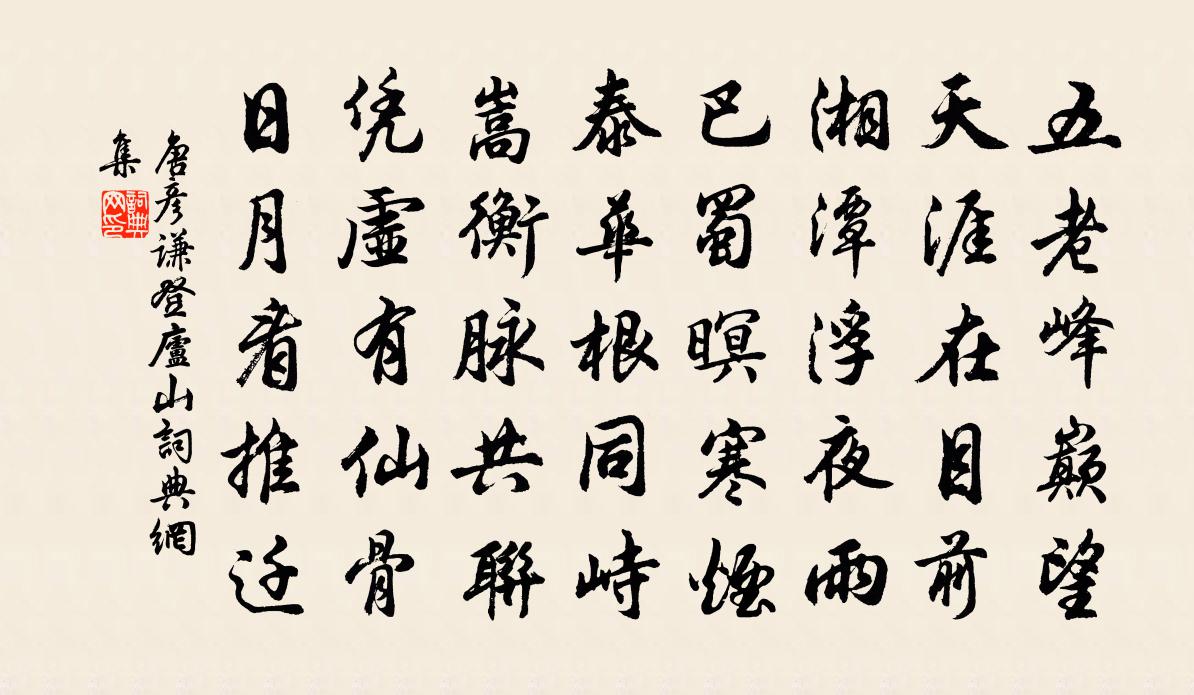 五老峰巅望
天涯在目前
湘潭浮夜雨
巴蜀暝寒煙
泰華根同峙
嵩衡脉共聯
凭虛有仙骨
日月看推迁
唐彥謙登廬山詞典網
集
詞典
网印